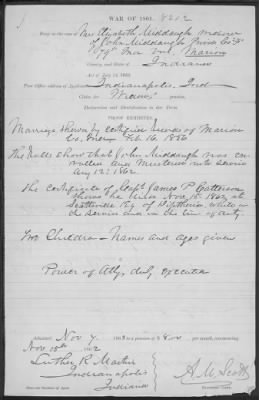 WAR OF 1861. 8212
Brief in the case of Mrs Elizabeth Middaugh widow
of John Middaugh Priv Co "K"
79th Ind Vol. Marion
County, and State of Indiana
Act of July 14, 1862.
Post Office address of Applicant: Indianapolis, Ind
Claim for Widow's pension.
Declaration and Identification in due Form.
PROOF EXHIBITED.
Marriage shown by certificate of Marion
Co, Feb 14 1856
The Rolls show that John Middaugh was en-
rolled and Mustered into service
Aug 12th 1862
The certificate of Capt James P. Catterson
shows he died Nov 1862 at
Scottsville Ky of Diphtheria, while in
the service and in the line of duty.
Two Children - Names and ages given
Power of Atty, duly executed
Admitted Nov 7 1863 to a pension of $8.00 per month, commencing
Nov 1862
Luther R. Martin
Indianapolis
Indiana
A M Scott
Name and Residence of Agent.
Examining Clerk.